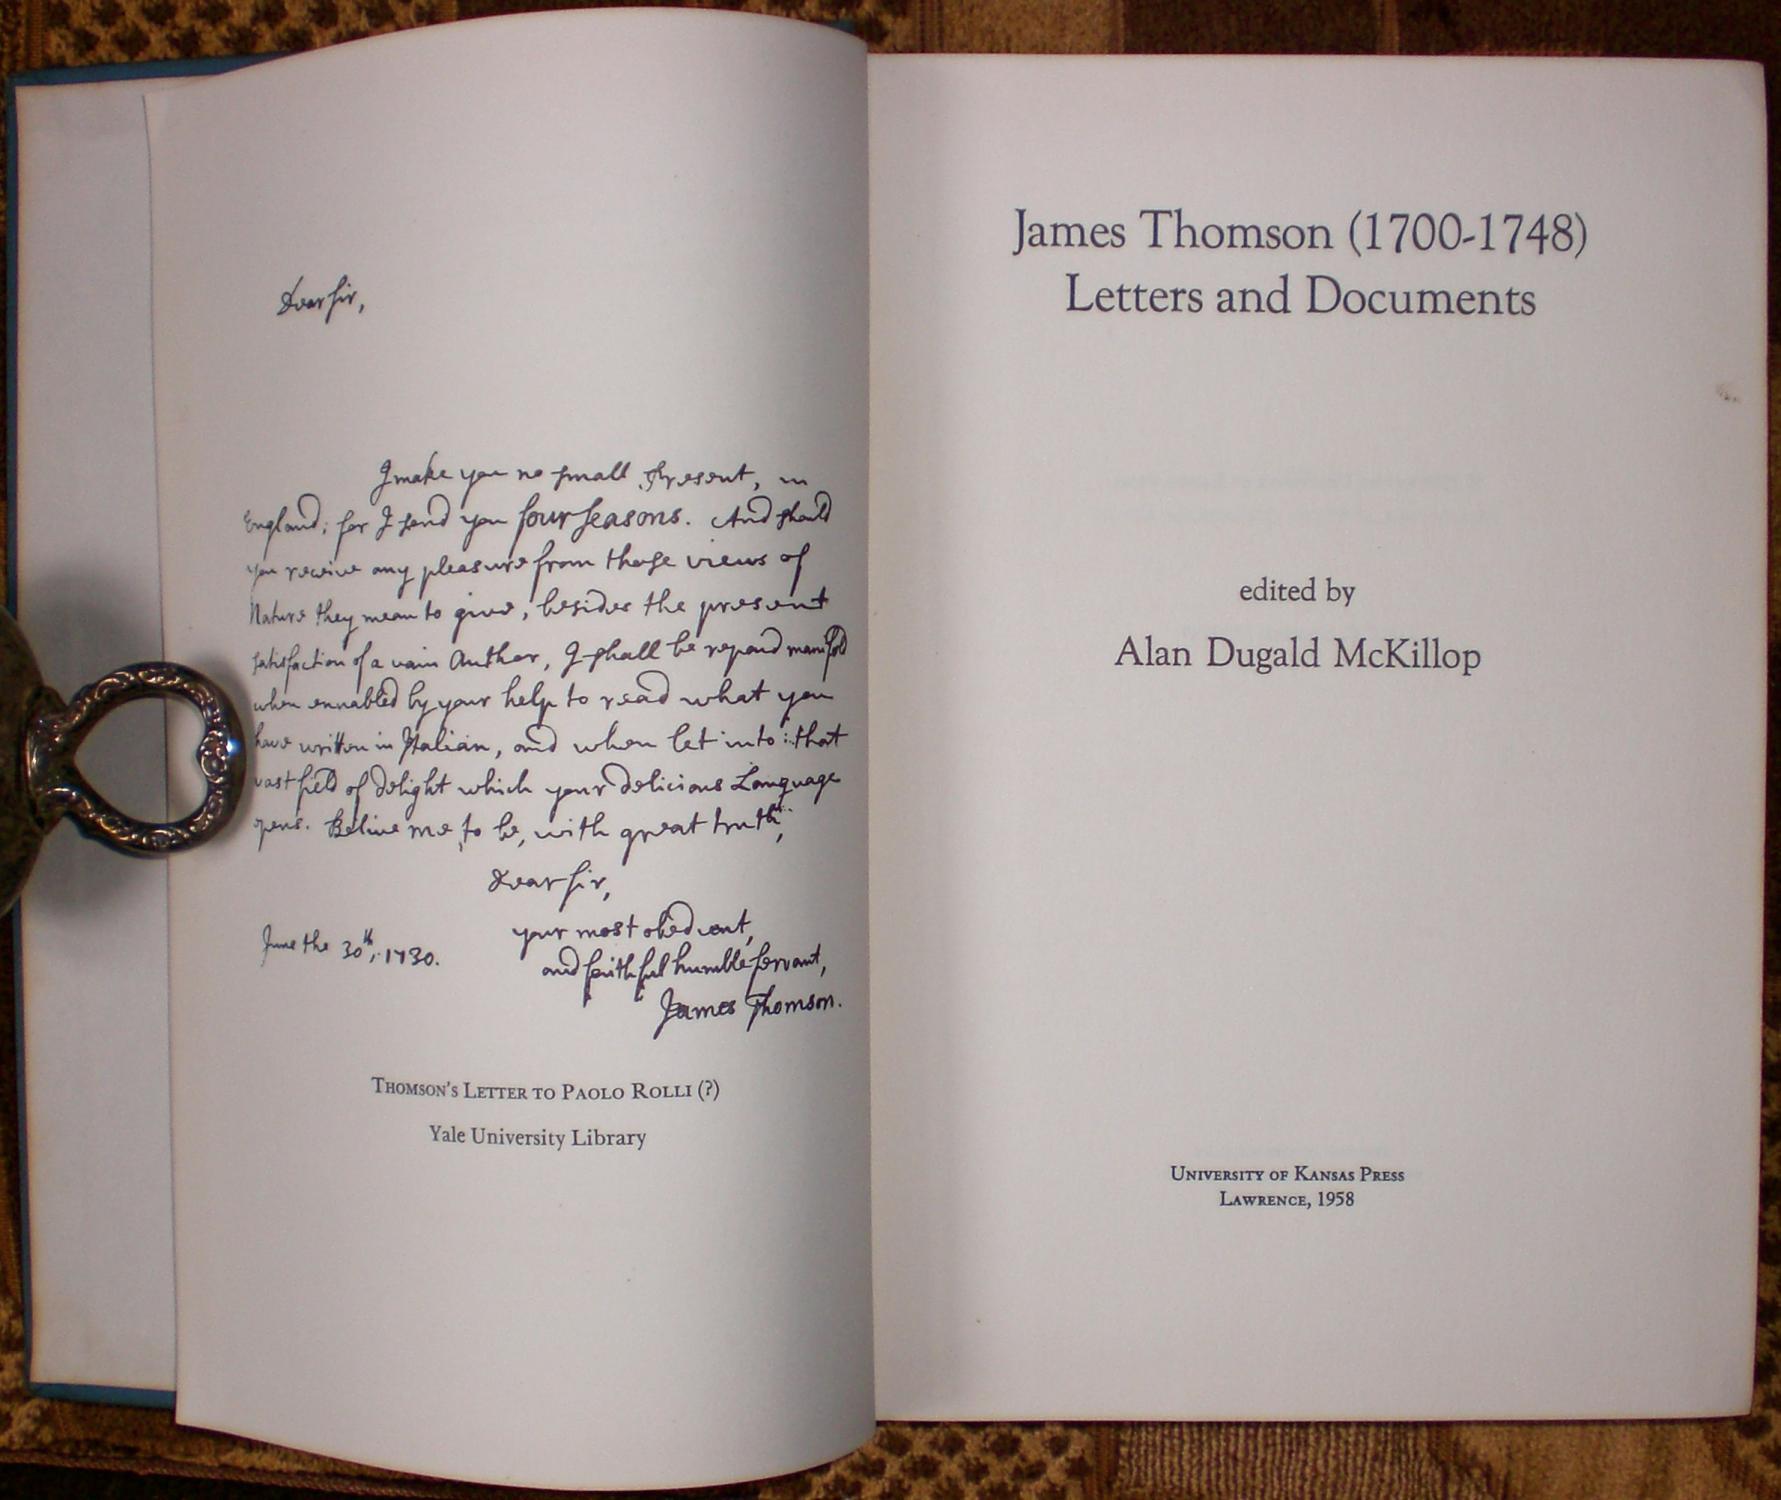 Dear Sir,
I make you no small Present, in
England; for I send you four Seasons. And should
you receive any pleasure from those views of
Nature they mean to give, besides the present
satisfaction of a vain Author, I shall be repaid manifold
when ennabled by your help to read what you
have written in Italian, and when let into that
vast field of delight which your delicious Language
opens. Belive me, to be, with great truth,
Dear Sir,
your most obedient,
and faithful humble servant,
James Thomson.
June the 30th, 1730.
THOMSON'S LETTER TO PAOLO ROLLI (?)
Yale University Library
James Thomson (1700-1748)
Letters and Documents
edited by
Alan Dugald McKillop
UNIVERSITY OF KANSAS PRESS
LAWRENCE, 1958